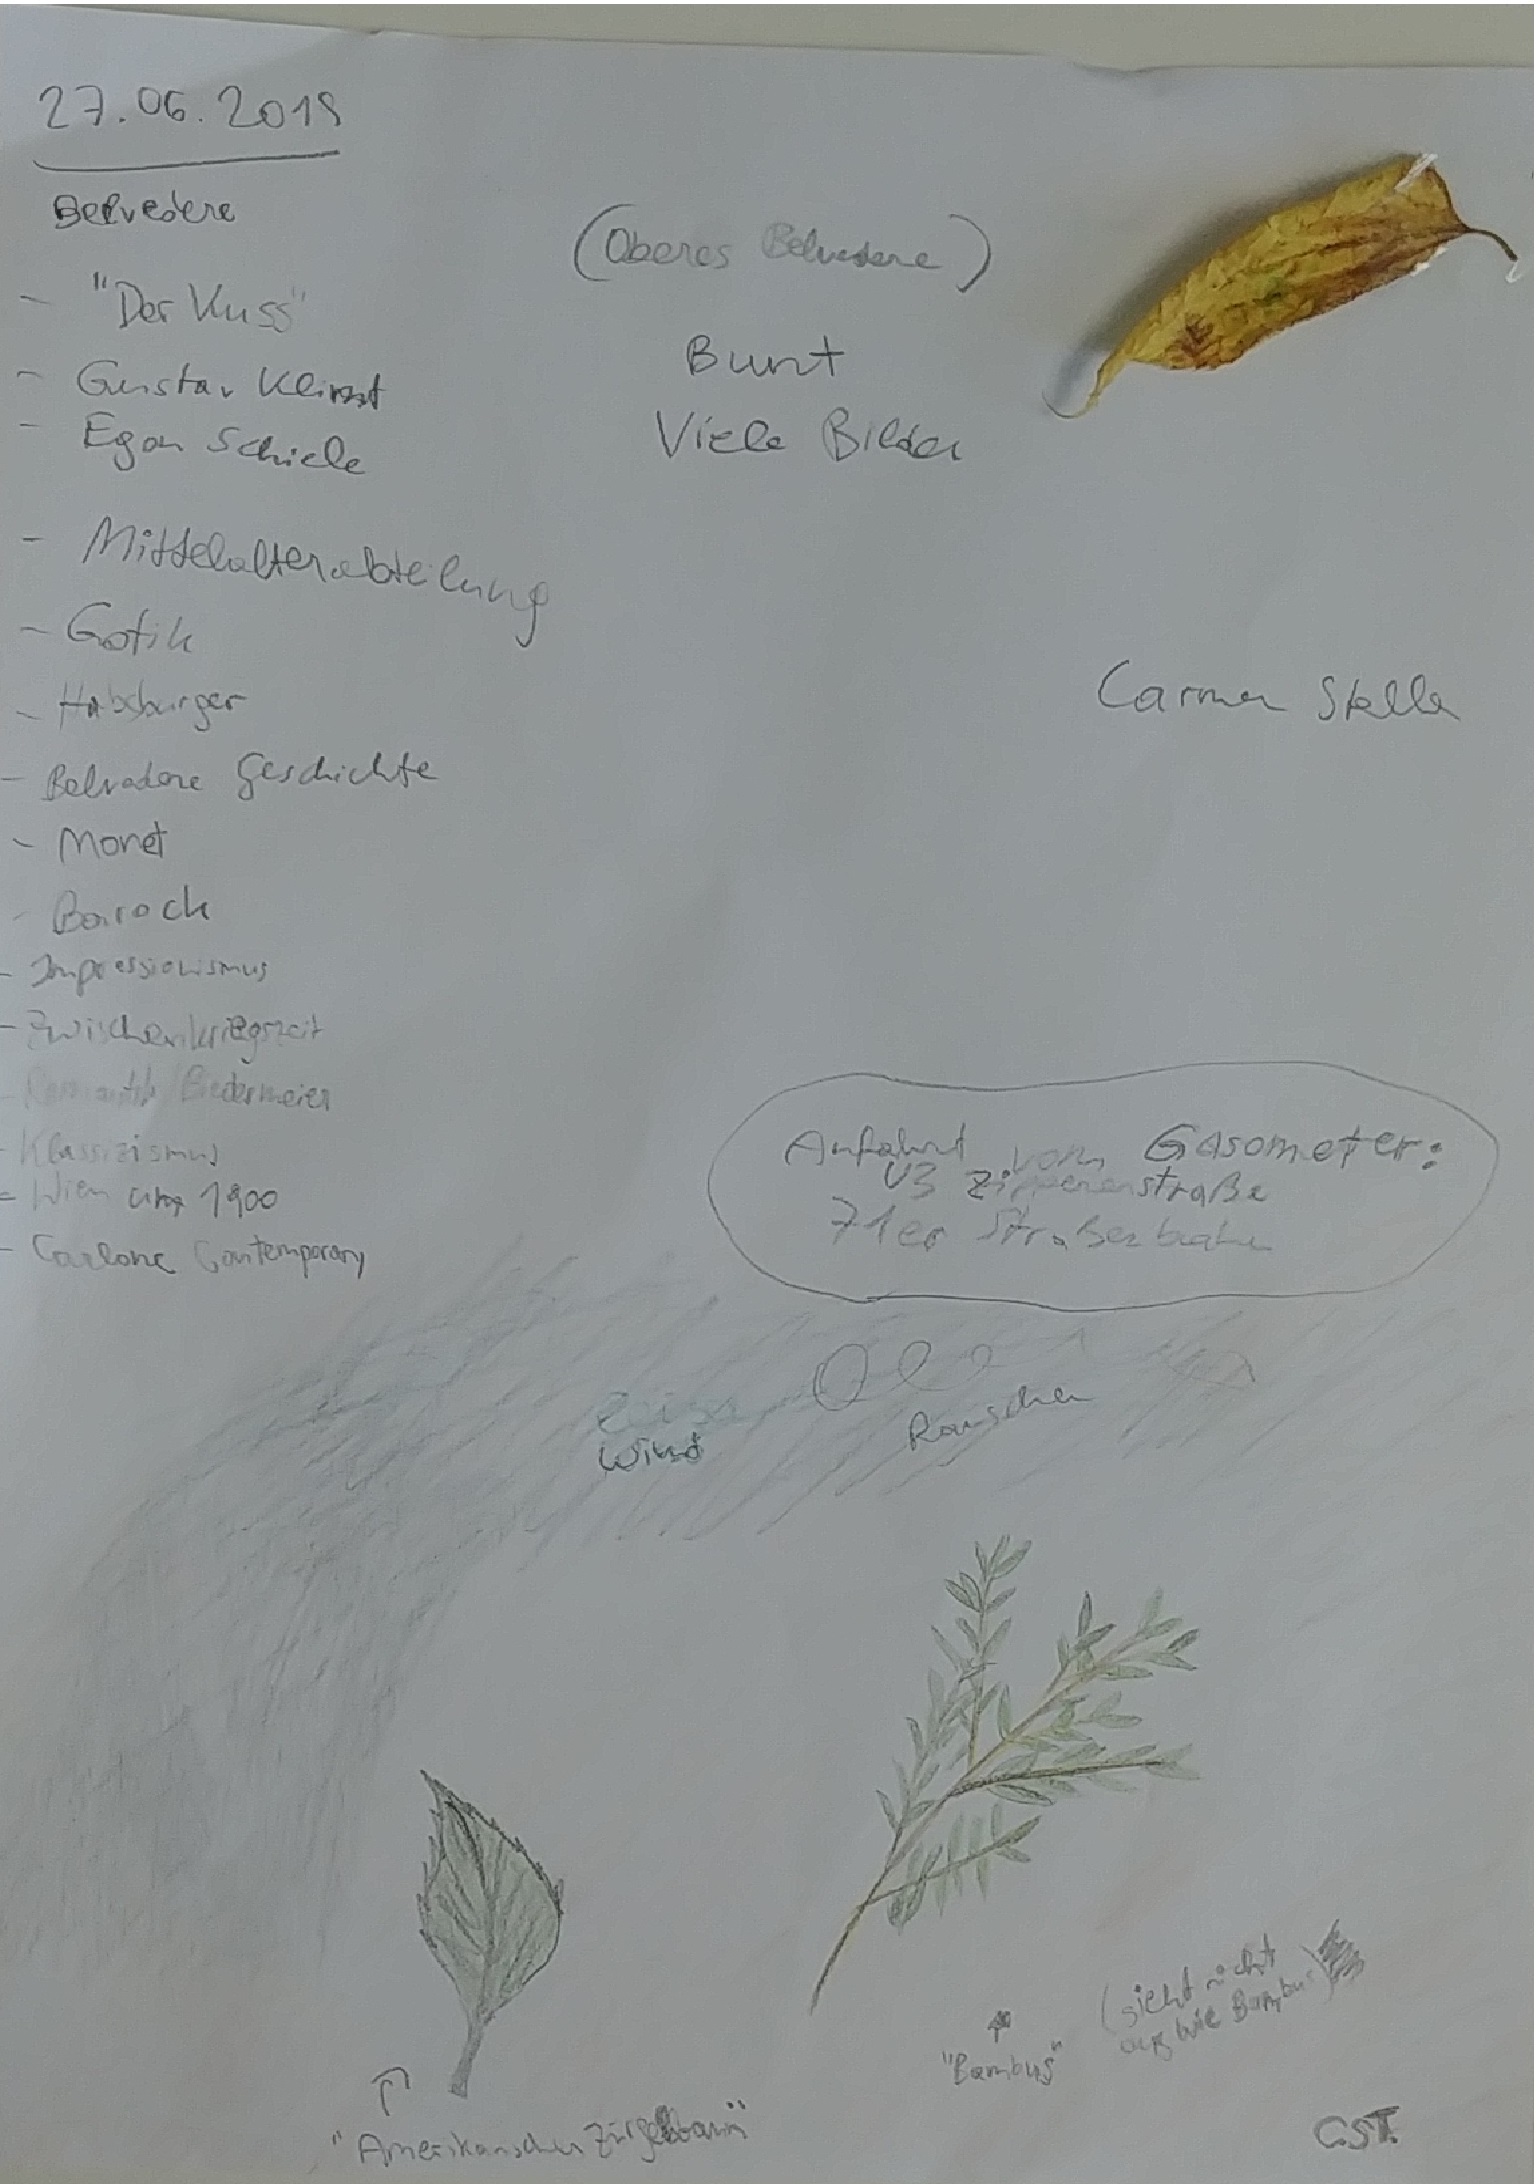 27.06.2019
Belvedere
(Oberes Belvedere)
- "Der Kuss"
- Gustav Klimt
- Egon Schiele
- Mittelalterabteilung
- Gotik
- Habsburger
- Belvedere Geschichte
- Monet
- Barock
- Impressionismus
- Zwischenkriegszeit
- Romantik/Biedermeier
- Klassizismus
- Wien um 1900
- Carlone Contemporary
Bunt
Viele Bilder
Carmen Stella
Anfahrt vom Gasometer:
U3 Zipperenstraße
71er Straßenbahn
Wind
Rauschen
"Amerikanischer Zürgelbaum"
"Bambus"
(sieht nicht
aus wie Bambus)
C.ST.